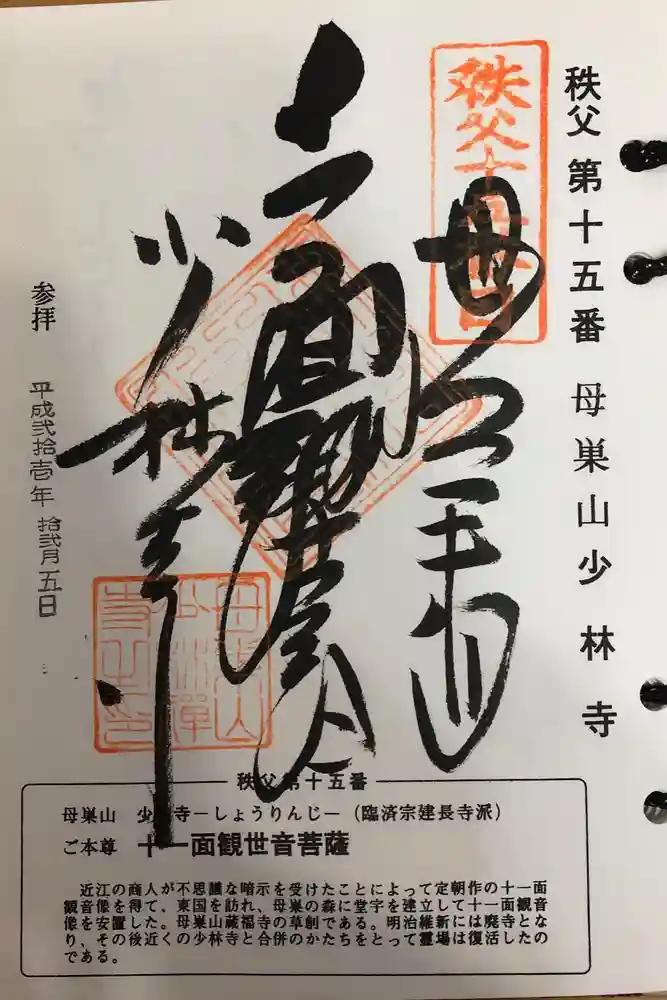 秩父 第十五番 母巣山少林寺
秩父十五番
十一面
少林寺
参拝 平成弐拾壱年 拾弐月五日
秩父第十五番
母巣山 少林寺－しょうりんじ－（臨済宗建長寺派）
ご本尊 十一面観世音菩薩
近江の商人が不思議な暗示を受けたことによって定朝作の十一面
観音像を得て、東国を訪れ、母巣の森に堂宇を建立して十一面観音
像を安置した。母巣山蔵福寺の草創である。明治維新には廃寺とな
り、その後近くの少林寺と合併のかたちをとって霊場は復活したの
である。